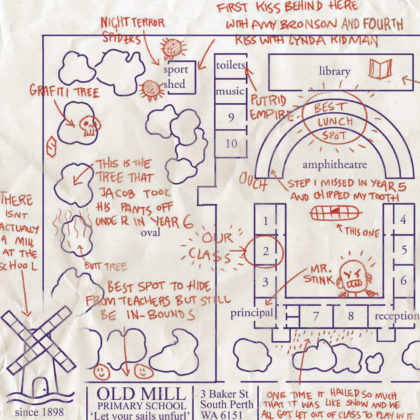 FIRST KISS BEHIND HERE
WITH AMY BRONSON AND FOURTH
KISS WITH LYNDA KIDMAN
NIGHT TERROR
SPIDERS
sport
shed
toilets
music
9
10
library
GRAFITI TREE
PUTRID
EMPIRE
BEST
LUNCH
SPOT
amphitheatre
OUCH
STEP I MISSED IN YEAR 5
AND CHIPPED MY TOOTH
THIS ONE
THIS IS THE
TREE THAT
JACOB TOOK
HIS PANTS OFF
UNDER IN YEAR 6
oval
THERE
ISN'T
ACTUALLY
A MILL
AT THE
SCHOOL
BUTT TREE
OUR
CLASS
1
2
3
4
5
6
MR.
STINK
BEST SPOT TO HIDE
FROM TEACHERS BUT STILL
BE IN-BOUNDS
principal
7
8
reception
since 1898
OLD MILL
PRIMARY SCHOOL
'Let your sails unfurl'
3 Baker St
South Perth
WA 6151
ONE TIME IT HAILED SO MUCH
THAT IT WAS LIKE SNOW AND WE
ALL GOT LET OUT OF CLASS TO PLAY IN IT